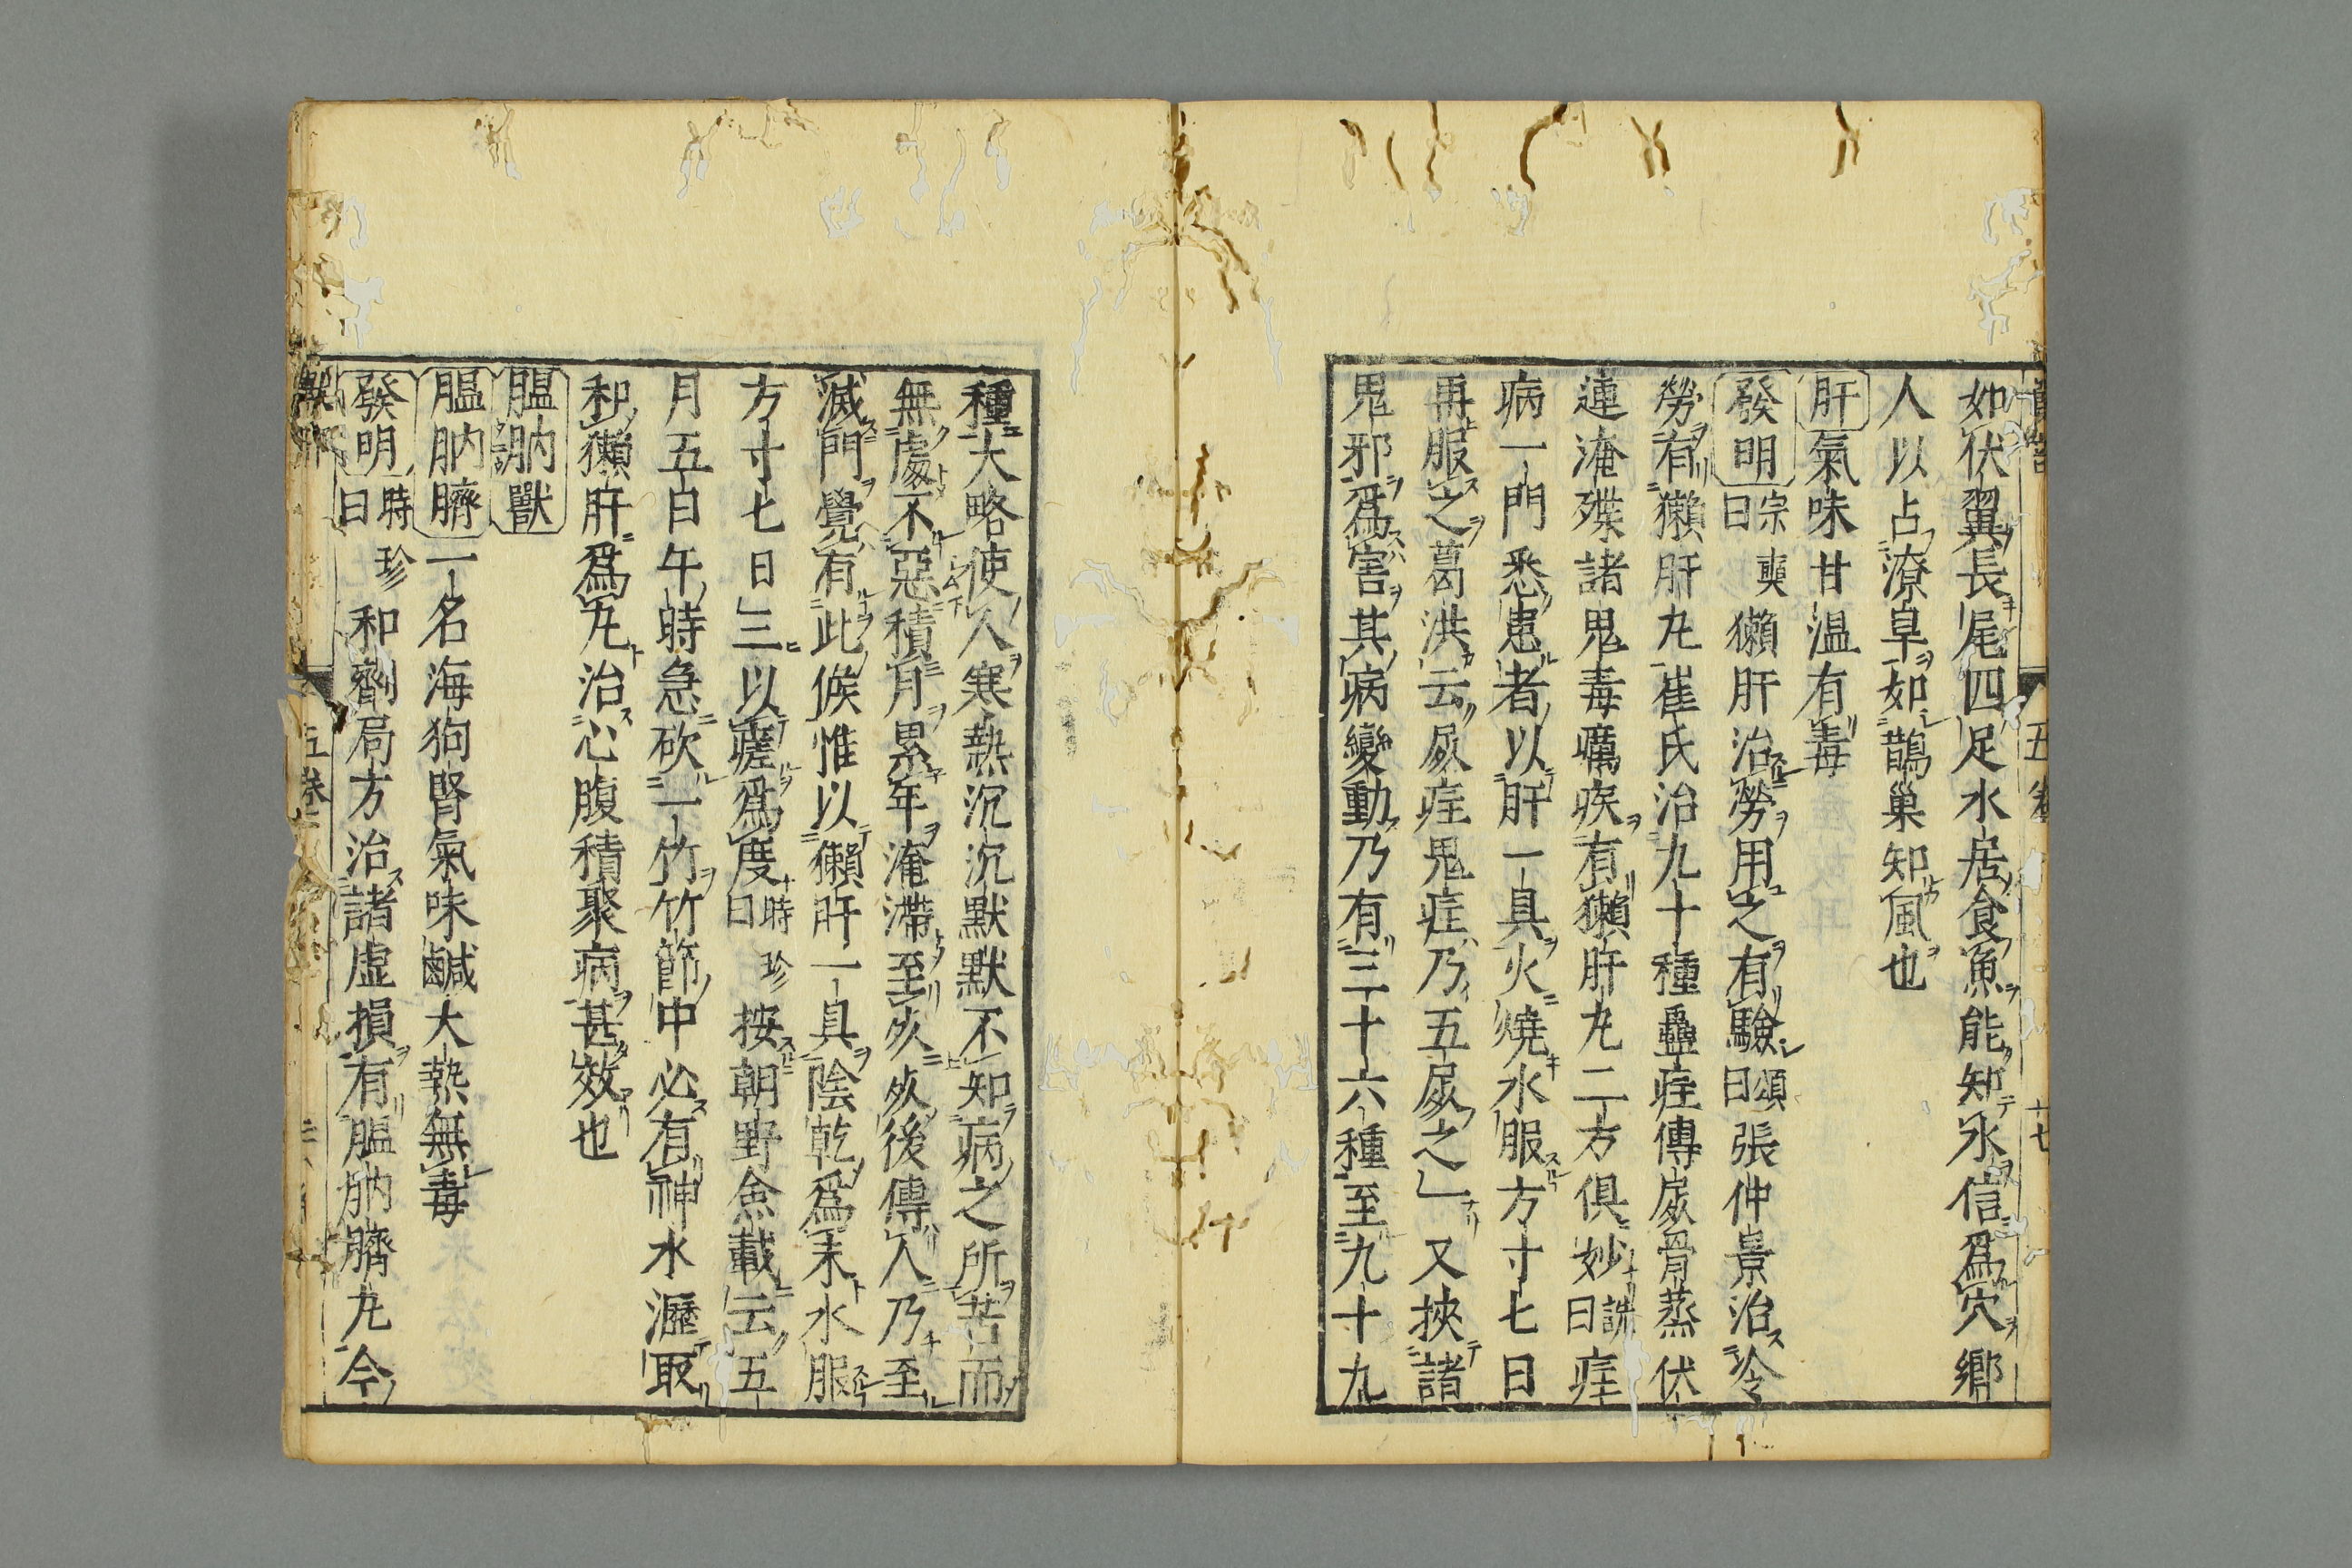 如伏翼長尾四足水居食魚能知水信爲穴鄉
人以占潦旱如鵲巢知風也
肝氣味甘温有毒
發明宗奭曰獺肝治勞用之有驗頌曰張仲景治冷
勞有獺肝丸崔氏治九十種蠱疰傳屍骨蒸伏
連淹殜諸鬼毒癘疾有獺肝丸二方俱妙詵曰疰
病一門悉患者以肝一具火燒水服方寸七日
再服之葛洪云屍疰鬼疰乃五屍之一又挾諸
鬼邪爲害其病變動乃有三十六種至九十九
種大略使人寒熱沉沉默默不知病之所苦而
無處不惡積月累年淹滯至死死後傳人乃至
滅門覺有此候惟以獺肝一具陰乾爲末水服
方寸七日三以瘥爲度時珍曰按朝野僉載云五
月五日午時急砍一竹竹節中必有神水瀝取
和獺肝爲丸治心腹積聚病甚效也
膃肭獸
膃肭臍一名海狗腎氣味鹹大熱無毒
發明時珍曰和劑局方治諸虚損有膃肭臍丸今